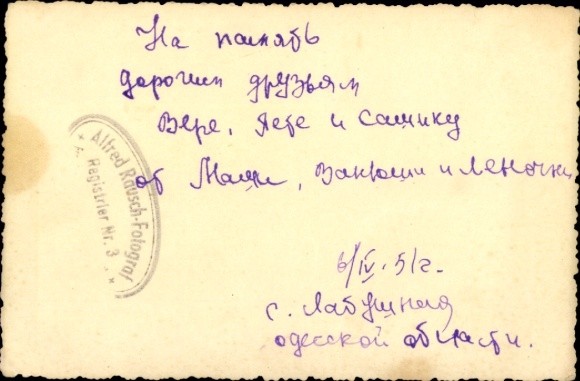 На память
дорогим друзьям
Вере, Пете и Сашику
от Маши, Ванюши и Леночки
6/IV-51г.
с. Лабушная
одесской области.
Alfred Rausch-Fotograf
Registrier Nr. 3